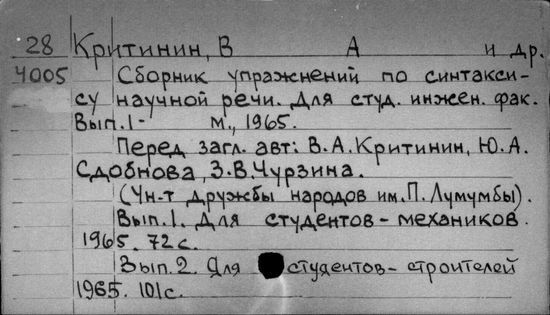 28 Критинин, В А и др.
4005 Сборник упражнений по синтакси-
су научной речи. Для студ. инжен. фак.
Вып.1- М., 1965.
Перед загл. авт: В.А.Критинин, Ю.А.
Сдобнова, З.В.Чурзина.
(Ун-т дружбы народов им.П.Лумумбы).
Вып.1. Для студентов-механиков.
1965. 72 с.
Вып.2. Для студентов-строителей
1965. 101с.